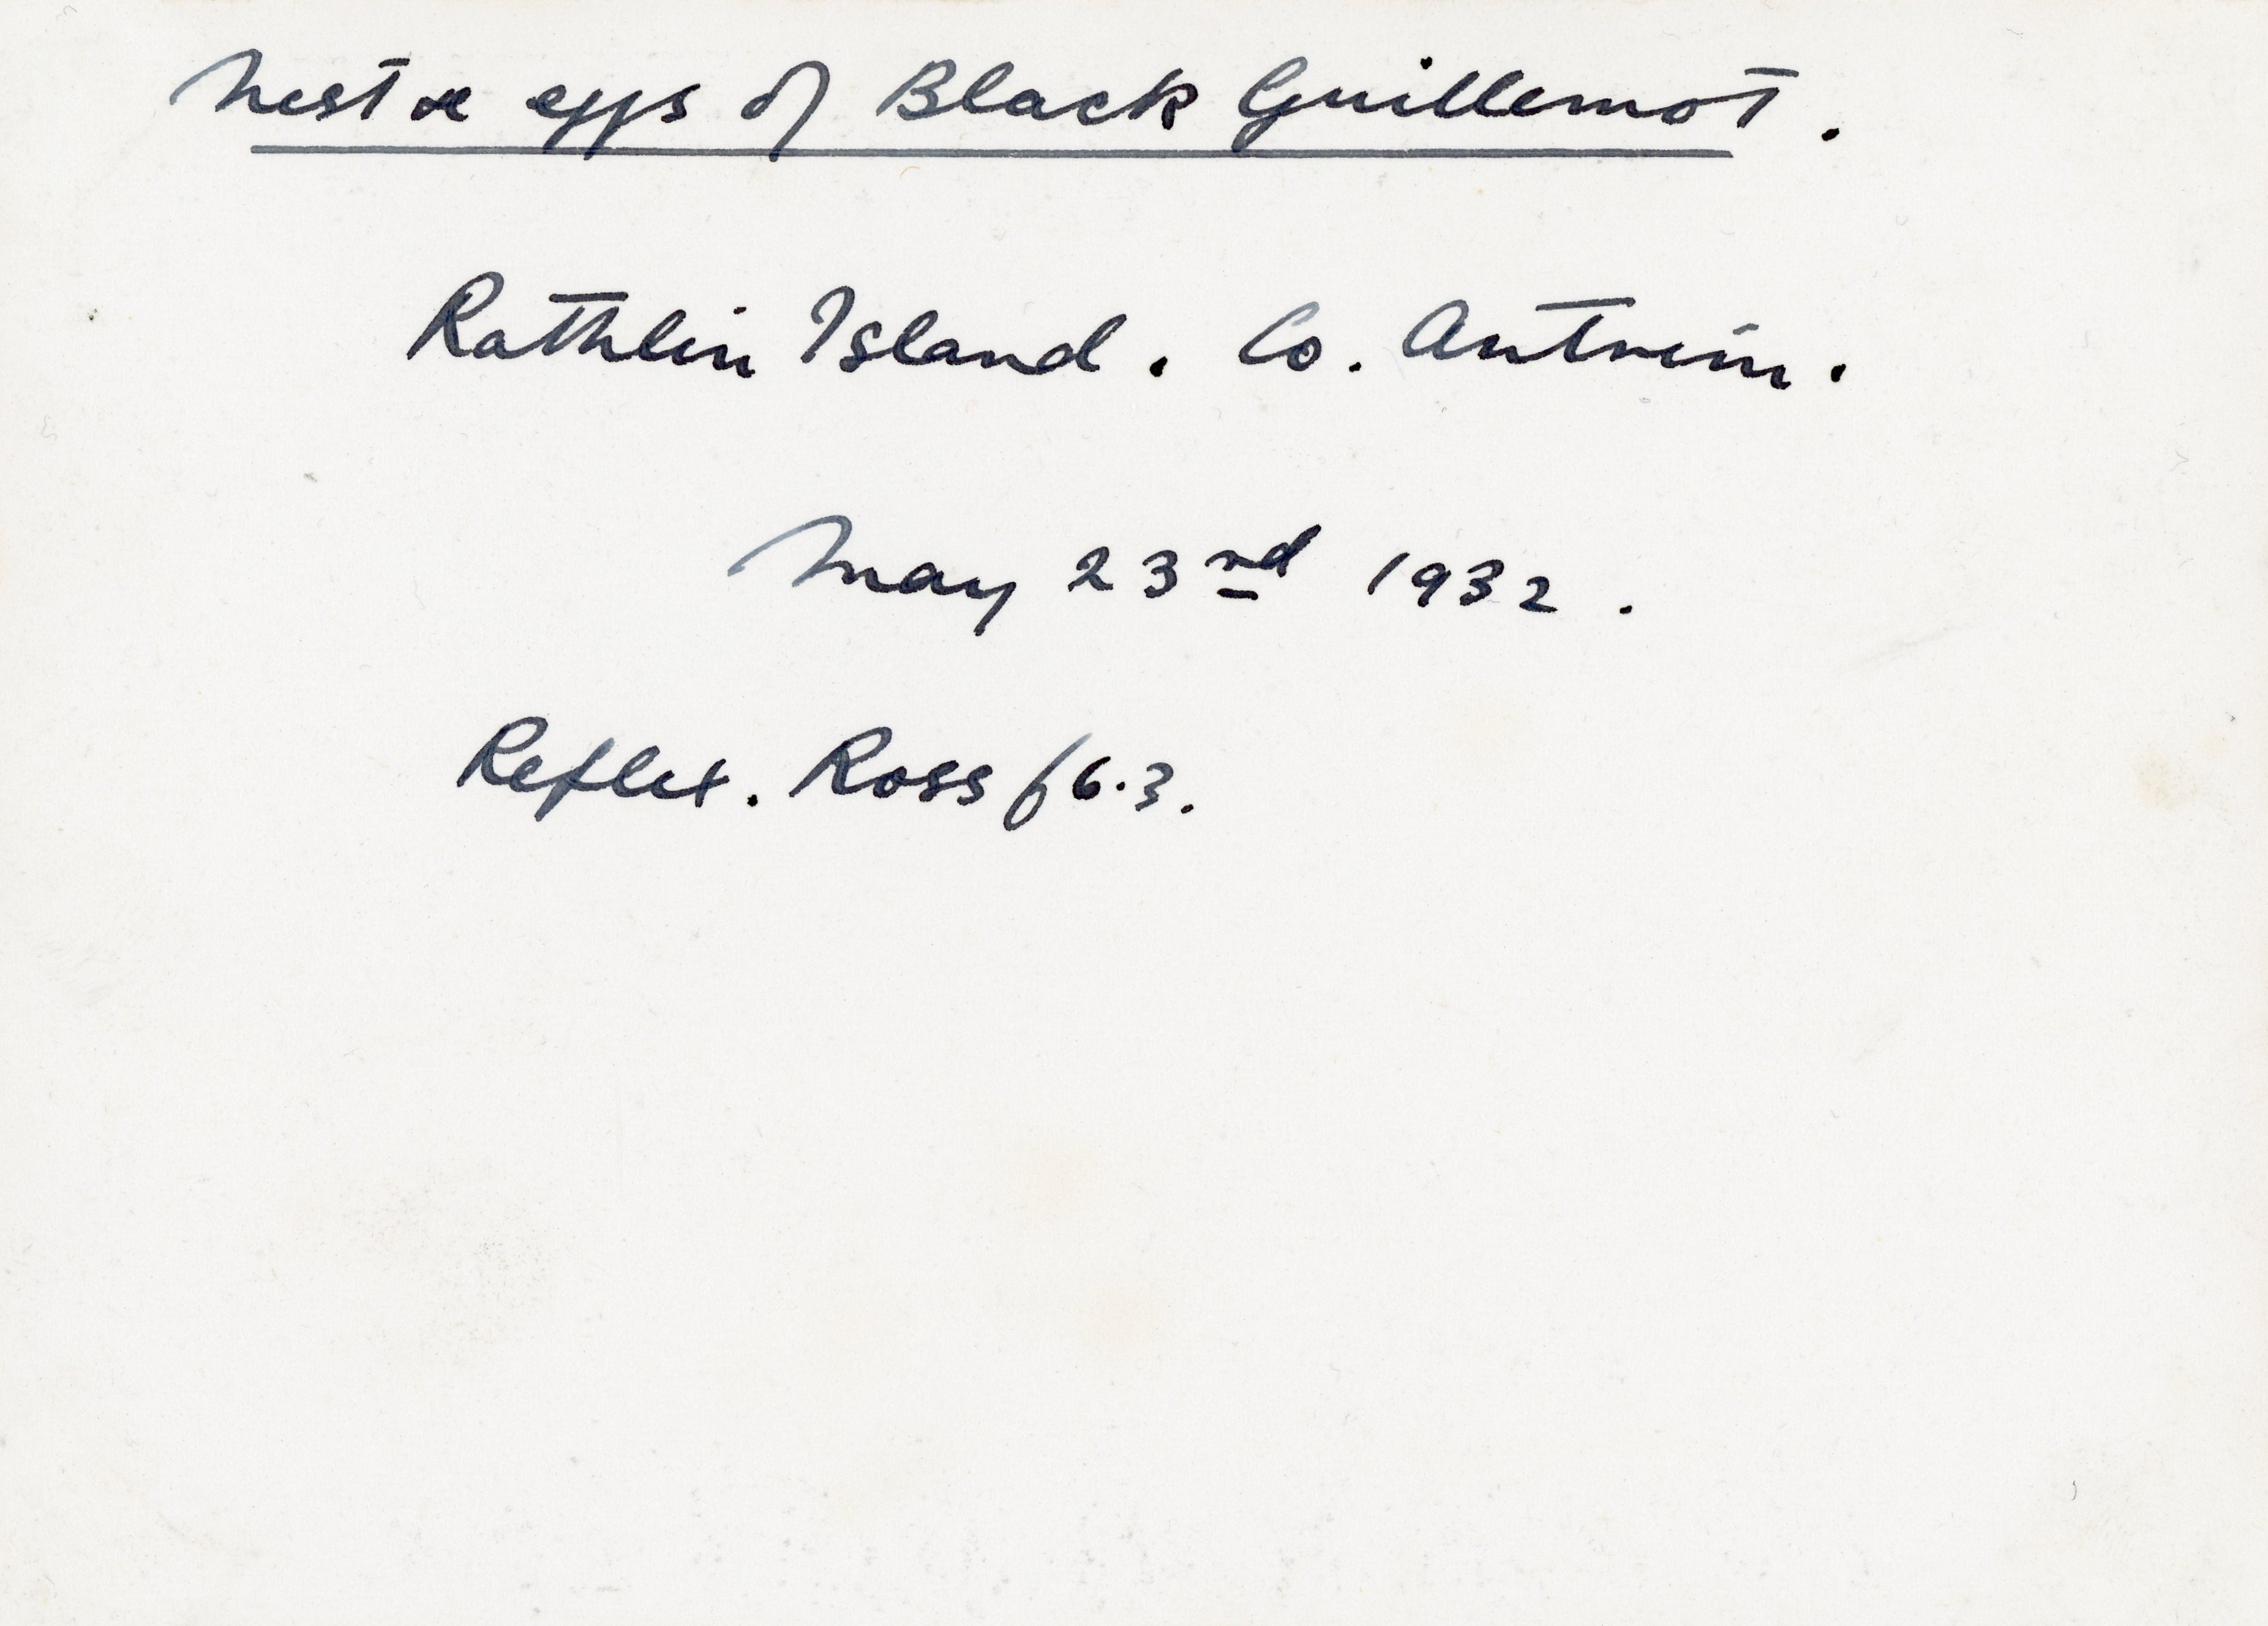 Nest & eggs of Black Guillemot.
Rathlin Island. Co. Antrim.
May 23rd 1932.
Reflex. Ross f6.3.